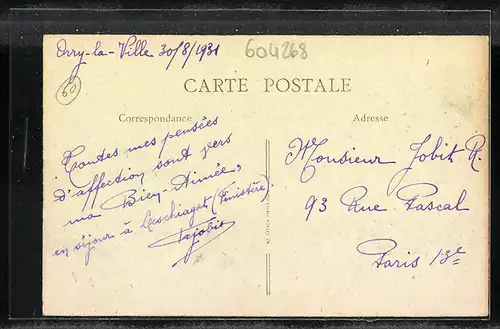 Orry-la-Ville 30/8/1931
604268
60
CARTE POSTALE
Correspondance
Adresse
Toutes mes pensées
d'affection sont vers
ma Bien-Aimée,
en séjour à Leschiagat (Finistère).
Rajobit
Monsieur Jobit R.
93 Rue Pascal
Paris 13e